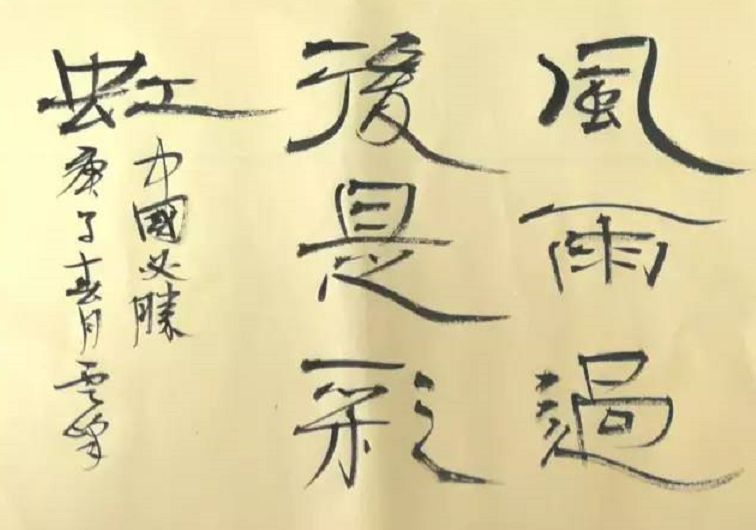 風雨過
後是彩
虹
中國必勝
庚子春月雲峰